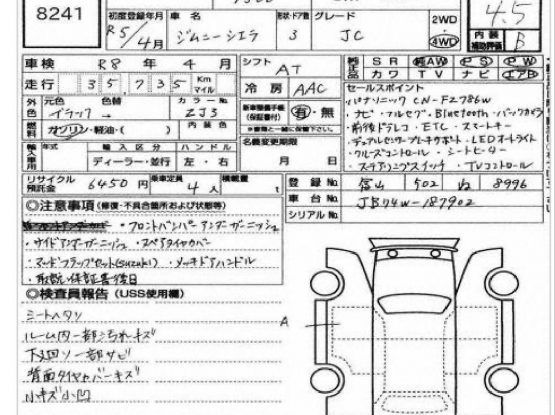 8241
初度登録年月 車名 形状・ドア数 グレード
R5/4月 ジムニーシエラ 3 JC
2WD
・
4WD
4.5
内装
補助評価 B
車検 R8年4月 シフト AT
走行 35,735 Km マイル 冷房 AAC
純正 SR 純AW PS PW
装備 カワ TV ナビ エアB
外色 元色 色替 カラーNo.
ブラック ZJ3
燃料 ガソリン・軽油・( ) 内装色
新車整備手帳(保証書付) 有・無
※書類と一緒に保管下さい。
セールスポイント
・パナソニック CN-F2786W
・ナビ・フルセグ・Bluetooth・バックカメラ
・前後ドラレコ・ETC・スマートキー
・デュアルセンサーブレーキサポート・LEDオートライト
・クルーズコントロール・シートヒーター
・ステアリングスイッチ・TVコントロール
輸入車用 年式 輸入区分 ハンドル
ディーラー・並行 左・右
名義変更期限
月 日
リサイクル預託金 6450円 乗車定員 4人 積載量 t
登録No. 富山 502 ね 8996
車台No. JB74W-187902
シリアルNo.
◎注意事項(修復・不具合箇所および状態等)
・フロントバンパーアンダーガーニッシュ
・サイドアンダーガーニッシュ・スペアタイヤカバー
・マッドフラップセット(suzuki)・メッキドアハンドル
・取説・保証書後日
◎検査員報告(USS使用欄)
シートヘタリ
ルーム内一部汚れキズ
下廻り一部サビ
背面タイヤカバーキズ
小キズ小凹
A